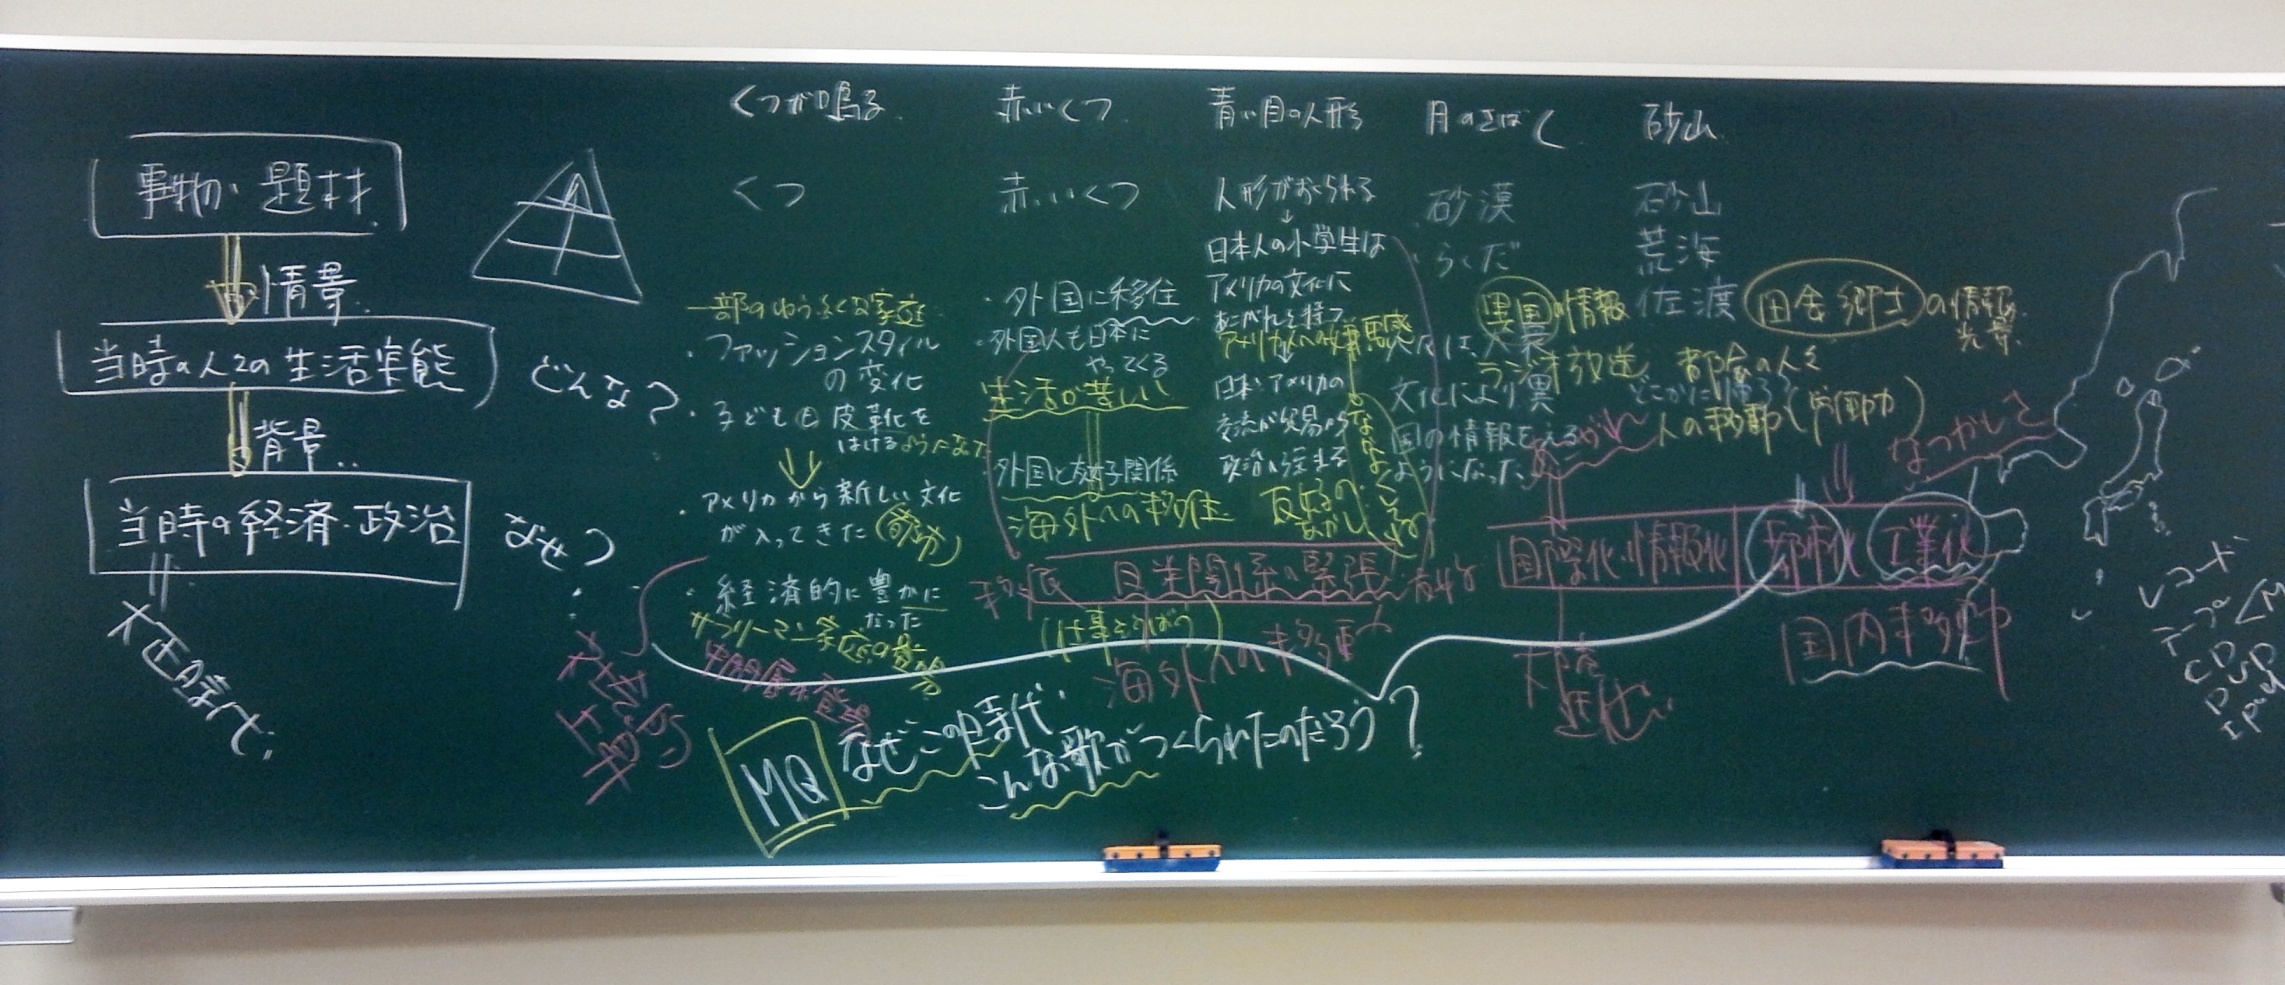 事物・題材
情景
当時の人々の生活実態
どんな?
背景
当時の経済・政治
なぜ?
大正時代
くつが鳴る
くつ
一部のゆうふくな家庭
・ファッションスタイル
の変化
・子どもも皮靴を
はけるようになった
・アメリカから新しい文化
が入ってきた
・経済的に豊かに
なった
サラリーマン家庭の
中間層の登場
赤いくつ
赤いくつ
・外国に移住
・外国人も日本に
やってくる
生活が苦しい
外国と友好関係
海外への移住
青い目の人形
人形がおくられる
↓
日本人の小学生は
アメリカの文化に
あこがれを持つ
アメリカ人への
日本・アメリカの
交流が貿易から
政治に
日米関係の緊張
海外への移動
月のさばく
・砂漠
・らくだ
異国の情報
ラジオ放送
文化により異
国の情報をえる
ようになった
あこがれ
国際化・情報化
砂山
砂山
荒海
佐渡
田舎郷土の情報
光景
都会の人々
どこかに帰ろう
人の移動(労働力)
なつかしさ
都市化
工業化
国内移動
MQ
なぜこの時代
こんな歌がつくられたのだろう?
レコード
テープ
CD